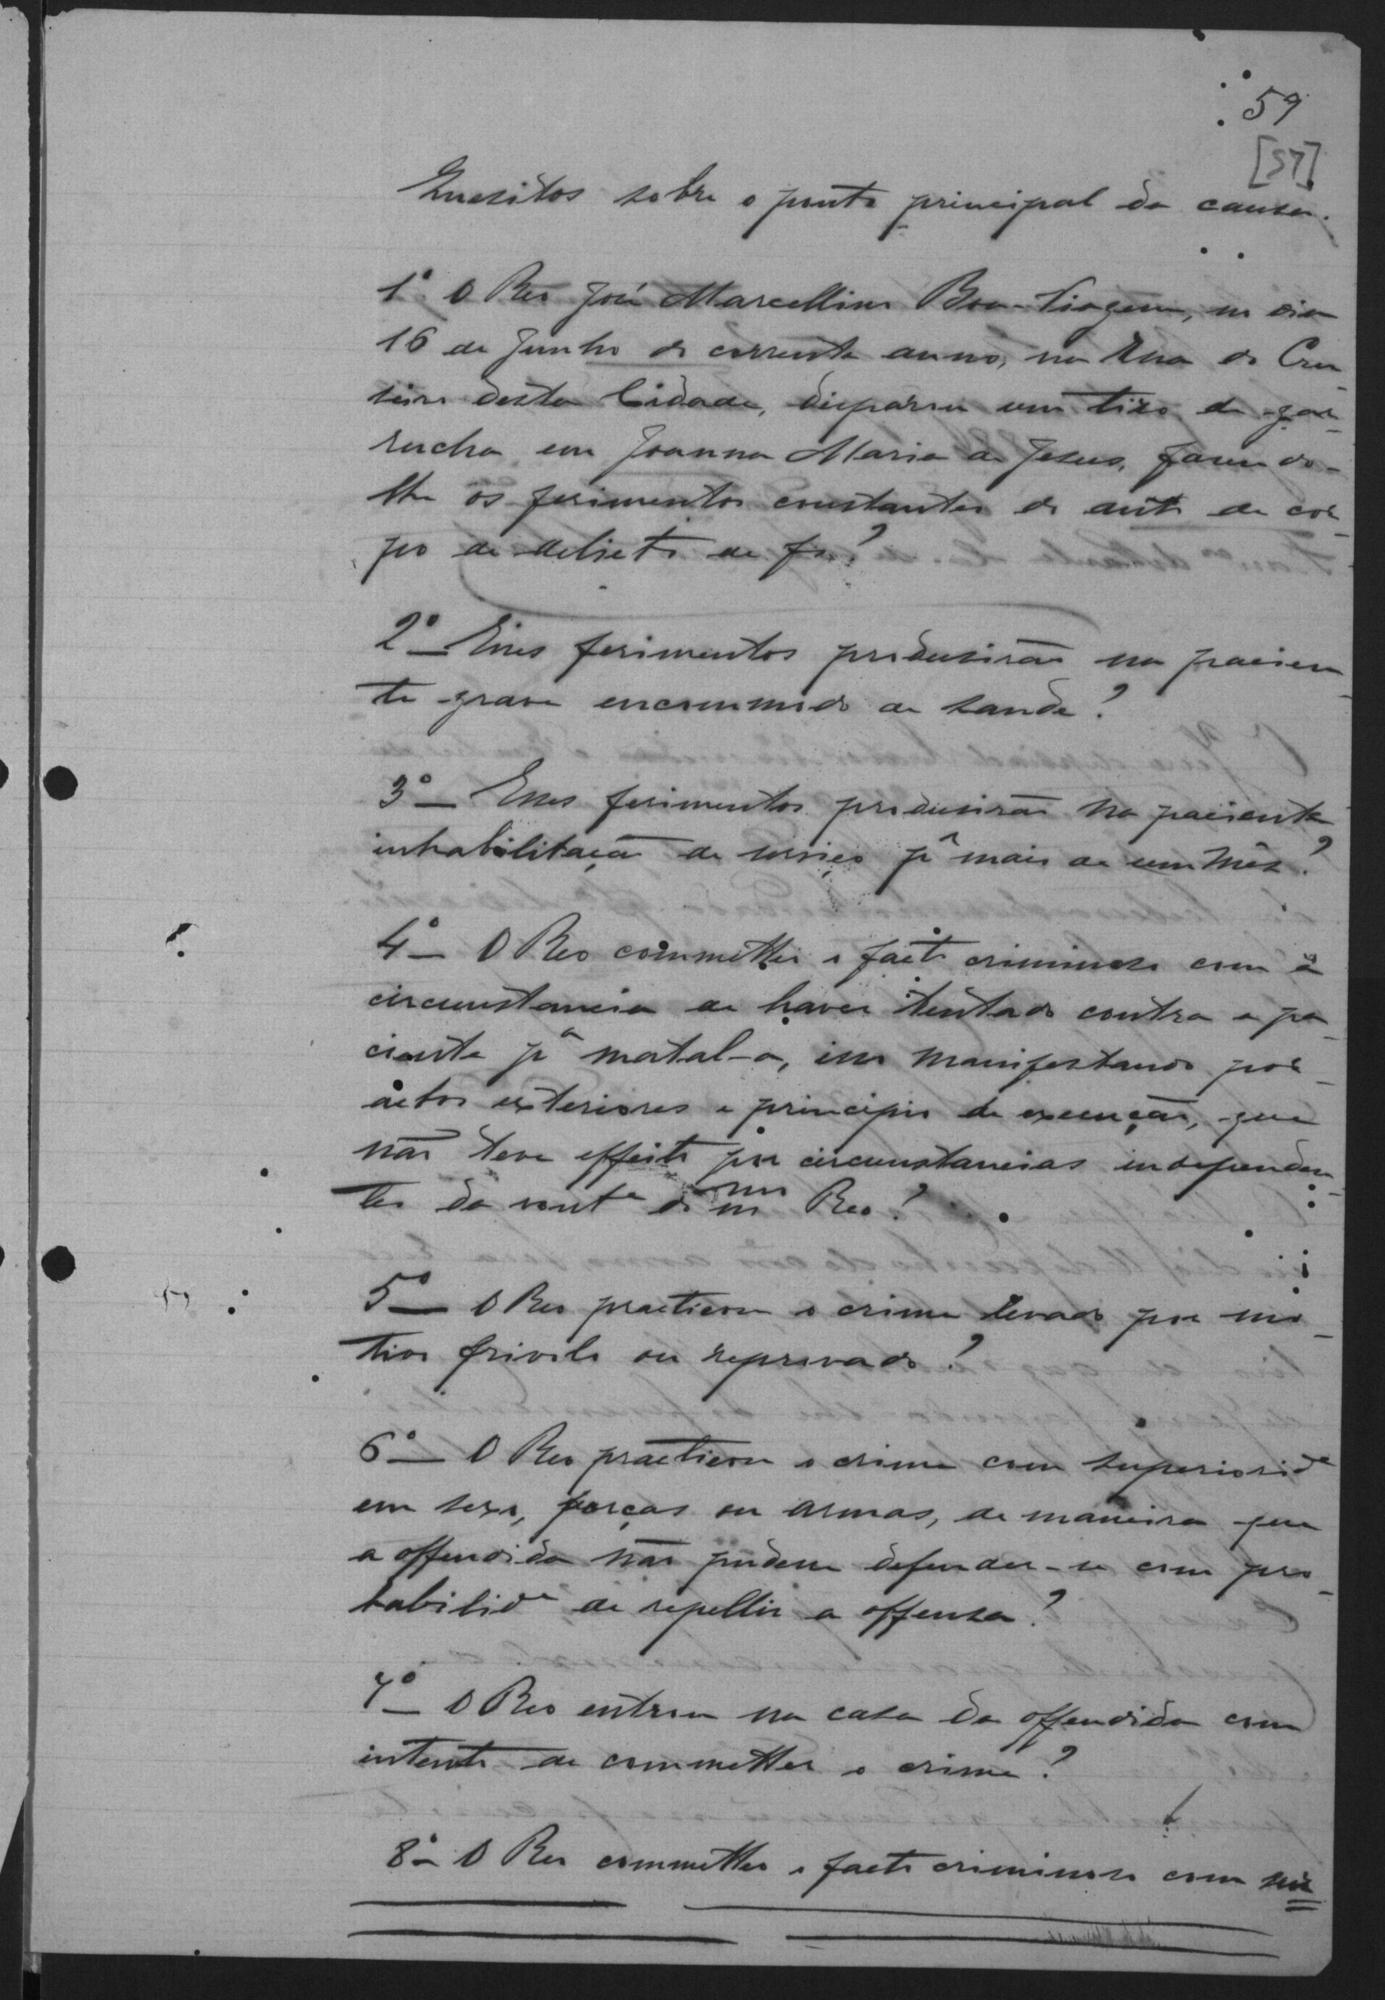 59
[57]
Quesitos sobre o ponto principal da causa.
1º O Reo José Marcellino Boa-Viagem, no dia
16 de Junho do corrente anno, na Rua do Cru-
seiro desta Cidade, disparou um tiro de gar-
rucha em Joanna Maria de Jesus, fasendo-
lhe os ferimentos constantes do auto de cor-
po de delicto de fs.?
2º — Esses ferimentos produsirão na pacien-
te grave encommodo de saude?
3º — Esses ferimentos produsirão na paciente
inhabilitação de serviço pª mais de um mês?
4º — O Reo commetteu o facto criminoso com a
circumstancia de haver tentado contra a pa-
ciente pª matal-a, isso manifestando por
actos exteriores e principio de execução, que
não teve effeito por circumstancias independen-
tes da vontᵉ do mmº Reo?
5º — O Reo practicou o crime levado por mo-
tivo frivolo ou reprovado?
6º — O Reo practicou o crime com superioridᵉ
em sexo, forças ou armas, de maneira que
a offendida não pudesse defender-se com pro-
babilidᵉ de repellir a offensa?
7º — O Reo entrou na casa da offendida com
intento de commetter o crime?
8º — O Reo commetteu o facto criminoso com